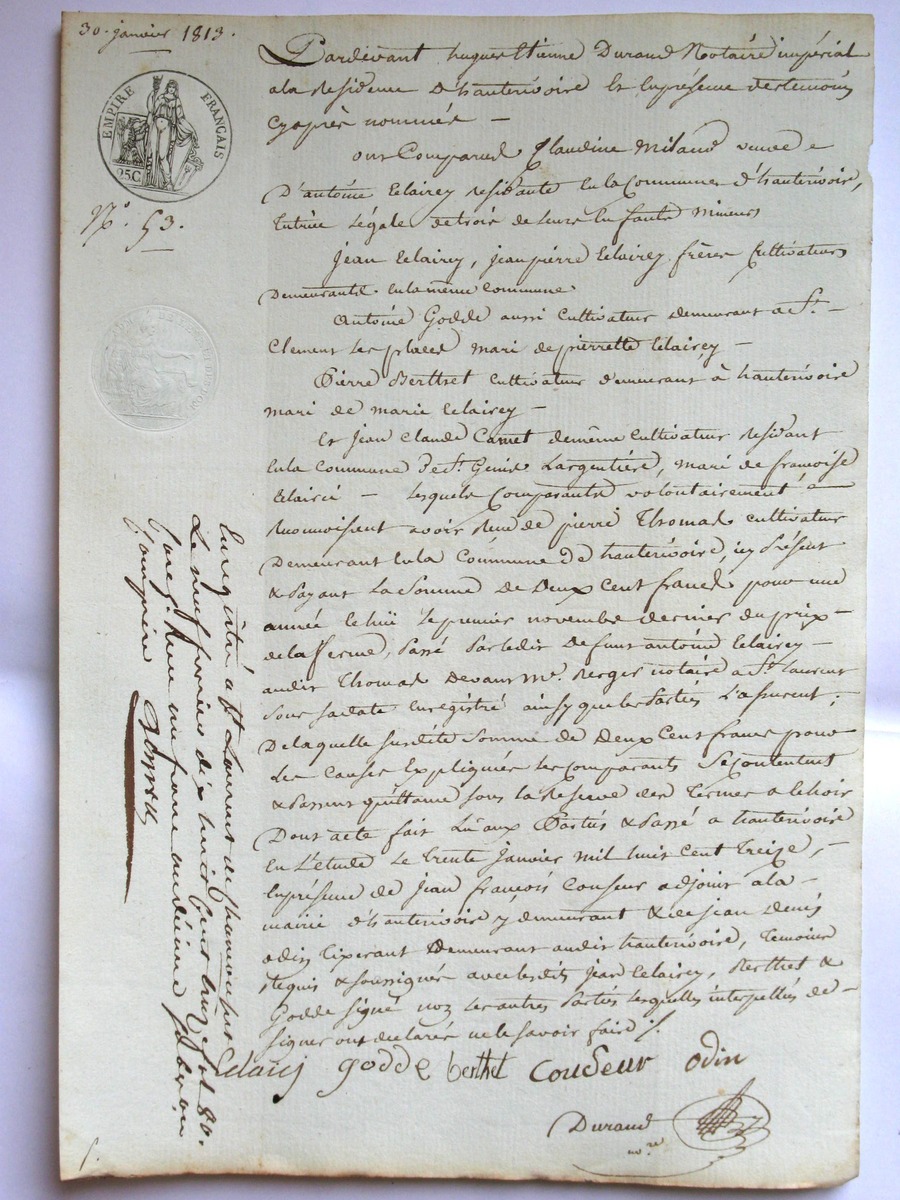 30. janvier 1813.
EMPIRE FRANÇAIS
25C
N.º 53.
Pardevant hugues Etienne Durand Notaire impérial
ala Residence D'hauterivoire Et Enprésence des temoins
Cyaprès nommés —
ont Comparus Claudine Miland veuve
D'antoine Eclairey residante En la Commune d'hauterivoire,
tutrice Légale de trois de leurs En fants Mineurs
Jean Eclairey, jean pierre Eclairey frères Cultivateurs
Demeurants En la même Commune
Antoine Godde aussi Cultivateur demeurant a St.
Clement Les places mari de pierrette Eclairey —
Pierre Berthet Cultivateur demeurant à hauterivoire
mari de marie Eclairey —
Et jean Claude Carnet demême Cultivateur Residant
En la Commune De St. Genis Largentière, mari de francoise
Eclairci — Lesquels Comparants volontairement
Reconnoissent avoir Reçu de pierre Thomas Cultivateur
Demeurant En la Commune De hauterivoire, icy Présent
& Payant La Somme De Deux Cent francs pour une
année Echüe Le premier novembre dernier du prix
de la ferme, Passé Par Ledit Defunt antoine Eclairey —
audit Thomas Devant Me. Berger notaire a St. Laurent
Sous sa date Enregistré ainsy que les Parties L'assurent ;
De laquelle Susdite Somme de Deux Cent francs pour
Les Causes Expliquées Les Comparants Se Contentent
& Passent quittance sous La Reserve des Termes a Echoir
Dont acte fait Lu aux Parties & Passé a hauterivoire
En L'Etude Le trente Janvier mil huit Cent Treize, —
Enprésence de jean françois Couseur adjoint à la —
mairie d'hauterivoire y demeurant & de jean Denis
odin Tixerant Demeurant audit hauterivoire, Temoins
Requis & soussignés avec lesdits jean Eclairey, Berthet &
Godde signé noz Les autres Parties Lesquelles interpellés de —
signer ont declarés ne le savoir faire
Eclairj godde berthet couseur odin
Durand
nore
Enregistré a St Laurent de chamousset
Le neuf fevrier dix huit Cent treize fol 80.
Reçu un franc